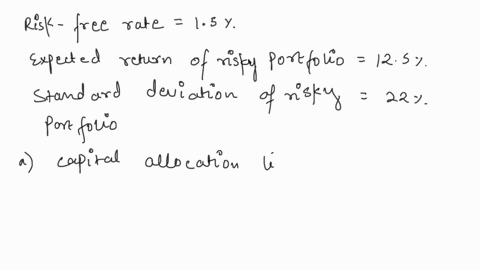 Risk-free rate = 1.5%.
Expected return of risky portfolio = 12.5%.
Standard deviation of risky = 22%.
Portfolio
a) capital allocation li